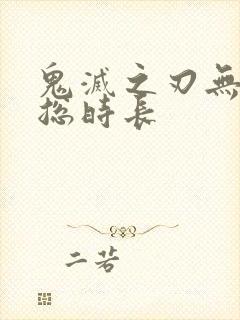 鬼滅之刃無
总時長
二若